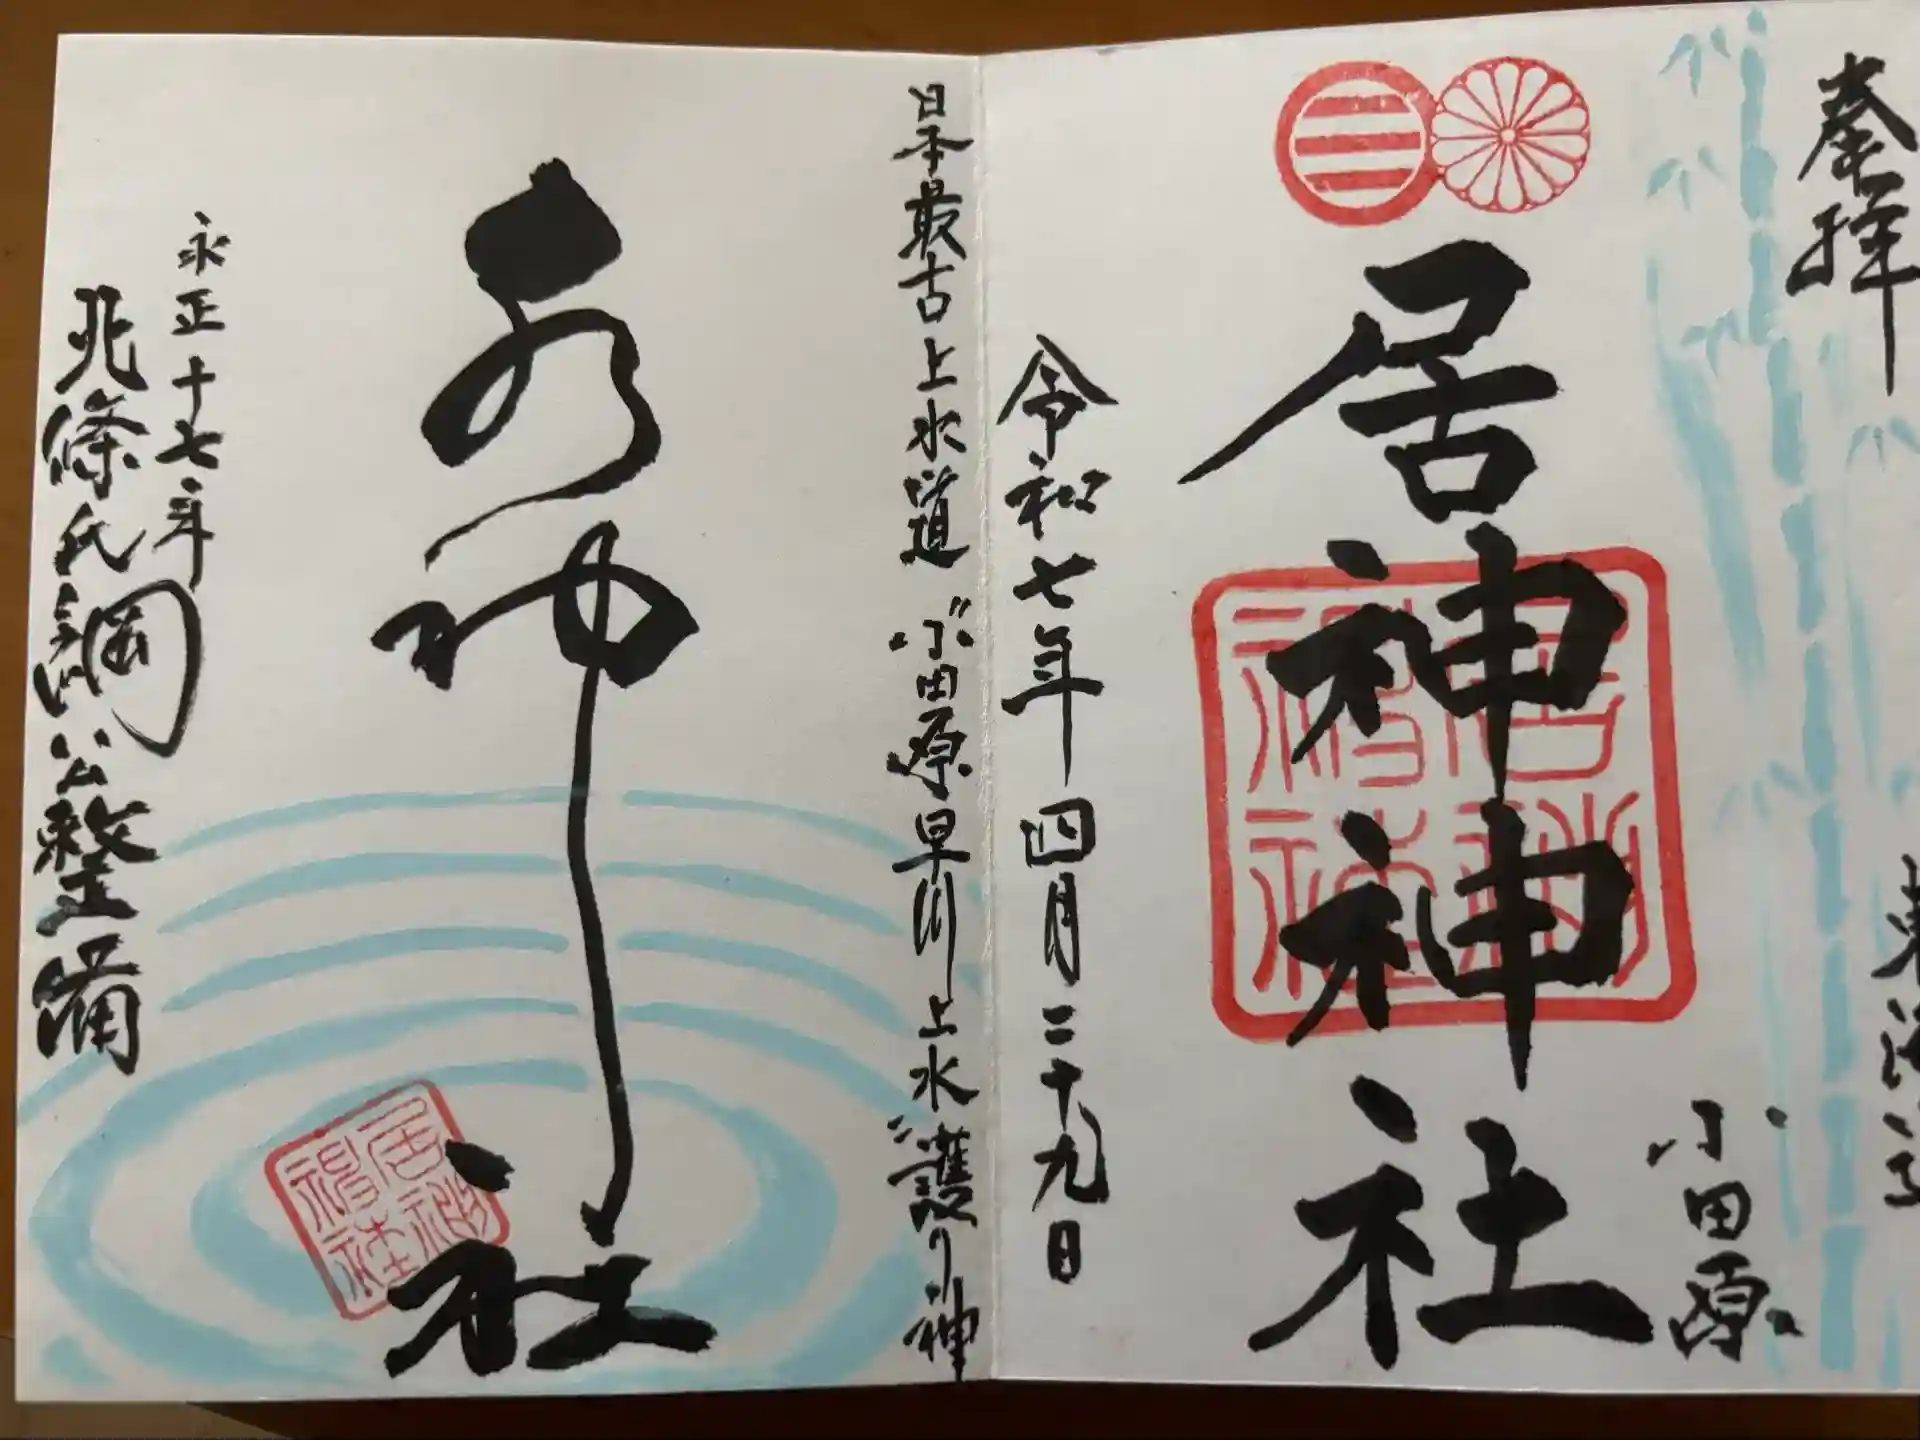 奉拝
東海道
小田原
居神神社
居神神社
令和七年四月二十九日
日本最古上水道〝小田原早川上水〟護り神
水神社
居神神社
永正十七年
北條氏綱公整備